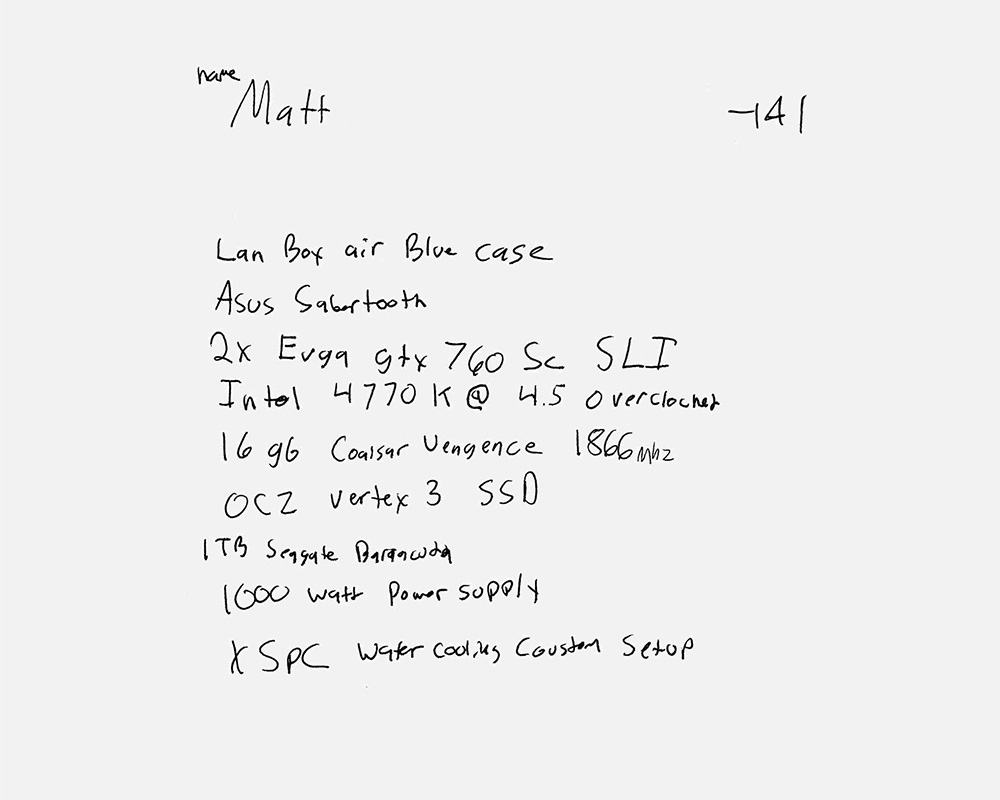 name
Matt
-141
Lan Box air Blue case
Asus Sabertooth
2x Evga gtx 760 Sc SLI
Intel 4770 K @ 4.5 overclocked
16 gb Coarsar Vengence 1866 Mhz
OCZ vertex 3 SSD
1TB Seagate Baracuda
1000 watt Power supply
XSPC Water cooling Coustom Setup